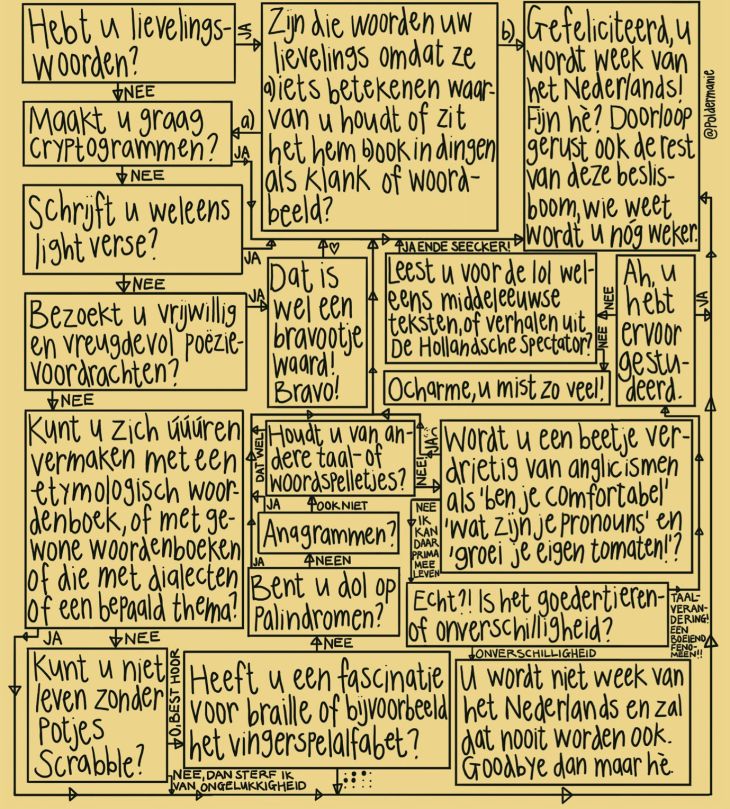 Hebt u lievelings-
woorden?
JA
NEE
Zijn die woorden uw
lievelings omdat ze
a) iets betekenen waar-
van u houdt of zit
het hem b) ook in dingen
als klank of woord-
beeld?
a)
b)
Gefeliciteerd, u
wordt week van
het Nederlands!
Fijn hè? Doorloop
gerust ook de rest
van deze beslis-
boom, wie weet
wordt u nóg weker.
@Poldermanie
Maakt u graag
cryptogrammen?
JA
NEE
Schrijft u weleens
light verse?
JA
NEE
Bezoekt u vrijwillig
en vreugdevol poëzie-
voordrachten?
JA
NEE
Dat is
wel een
bravootje
waard!
Bravo!
♡
JA ENDE SEECKER!
Leest u voor de lol wel-
eens middeleeuwse
teksten, of verhalen uit
De Hollandsche Spectator?
NEE
NEE
Ocharme, u mist zo veel!
Ah, u
hebt
ervoor
gestu-
deerd.
JA
Kunt u zich úúúren
vermaken met een
etymologisch woor-
denboek, of met ge-
wone woordenboeken
of die met dialecten
of een bepaald thema?
JA
NEE
Houdt u van an-
dere taal- of
woordspelletjes?
DAT WEL
NEE!
JA
OOK NIET
Anagrammen?
JA
NEEN
Bent u dol op
Palindromen?
JA
NEE
Wordt u een beetje ver-
drietig van anglicismen
als 'ben je comfortabel'
'wat zijn je pronouns' en
'groei je eigen tomaten!'?
JA
NEE
IK
KAN
DAAR
PRIMA
MEE
LEVEN
Echt?! Is het goedertieren-
of onverschilligheid?
TAAL-
VERAN-
DERING!
EEN
BOEIEND
FENO-
MEEN!!
ONVERSCHILLIGHEID
U wordt niet week van
het Nederlands en zal
dat nooit worden ook.
Goodbye dan maar hè.
Kunt u niet
leven zonder
potjes
Scrabble?
O, BEST HOOR
NEE, DAN STERF IK
VAN ONGELUKKIGHEID
Heeft u een fascinatie
voor braille of bijvoorbeeld
het vingerspelalfabet?